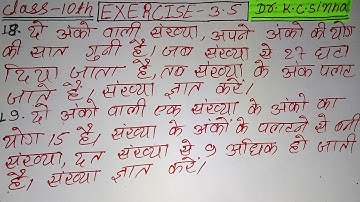 Class-10th EXERCISE-3.5 Dr. K.C. Sinha
18. दो अंको वाली संख्या, अपने अंको की योग
की सात गुनी है, जब संख्या से 27 घटा
दिया जाता है, तब संख्या के अंक पलट
जाते हैं, संख्या ज्ञात करें।
19. दो अंको वाली एक संख्या के अंको का
योग 15 है, संख्या के अंकों के पलटने से बनी
संख्या, दत्त संख्या से 9 अधिक हो जाती
है, संख्या ज्ञात करें।